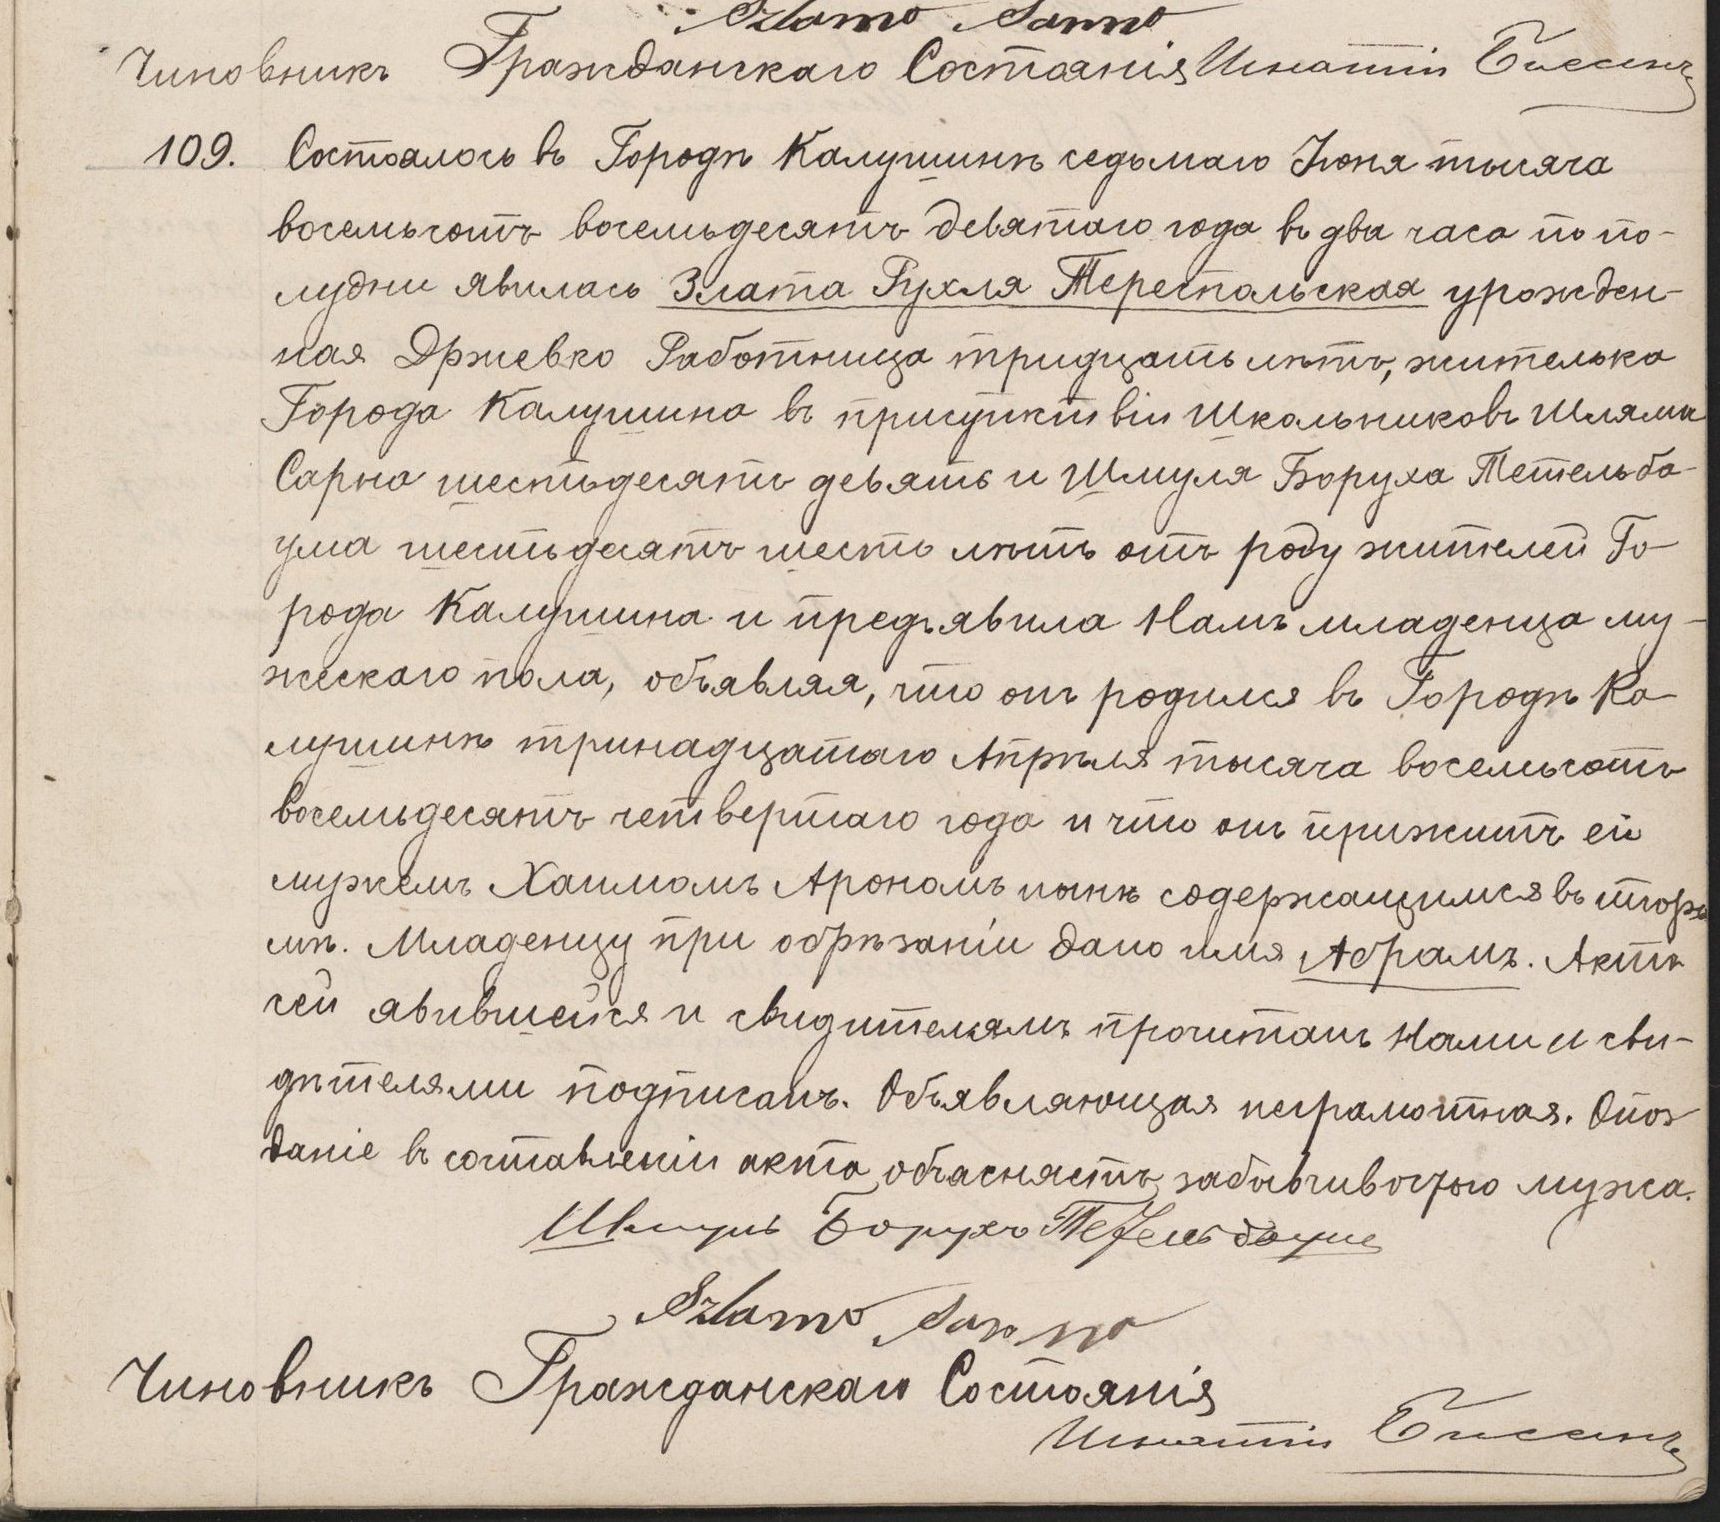 Szlamo Sarno
Чиновникъ Гражданскаго Состоянія Игнатій
109. Состоялось въ Городѣ Калушинѣ седьмаго Іюня тысяча
восемьсотъ восемьдесятъ девятаго года въ два часа по по-
лудни явилась Злата Рухля Тереспольская урожден-
ная Држевко Работница тридцать лѣтъ, жителька
Города Калушина въ присутствіи Школьниковъ Шлямы
Сарна шестьдесятъ девять и Шмуля Боруха Тетельба-
ума шестьдесятъ шесть лѣтъ отъ роду жителей Го-
рода Калушина и предъявила Намъ младенца му-
жескаго пола, объявляя, что онъ родился въ Городѣ Ка-
лушинѣ тринадцатаго Апрѣля тысяча восемьсотъ
восемьдесятъ четвертаго года и что онъ прижитъ ей
мужемъ Хаимомъ Арономъ нынѣ содержащимся въ тюрь
мѣ. Младенцу при обрѣзаніи дано имя Абрамъ. Актъ
сей явившейся и свидѣтелямъ прочитанъ Нами и сви-
дѣтелями подписанъ. Объявляющая неграмотная. Опоз
даніе въ составленіи акта объясняетъ забывчивостью мужа.
Шмуль Борухъ Тетельбаумъ
Szlamo Sarno
Чиновникъ Гражданскаго Состоянія
Игнатій